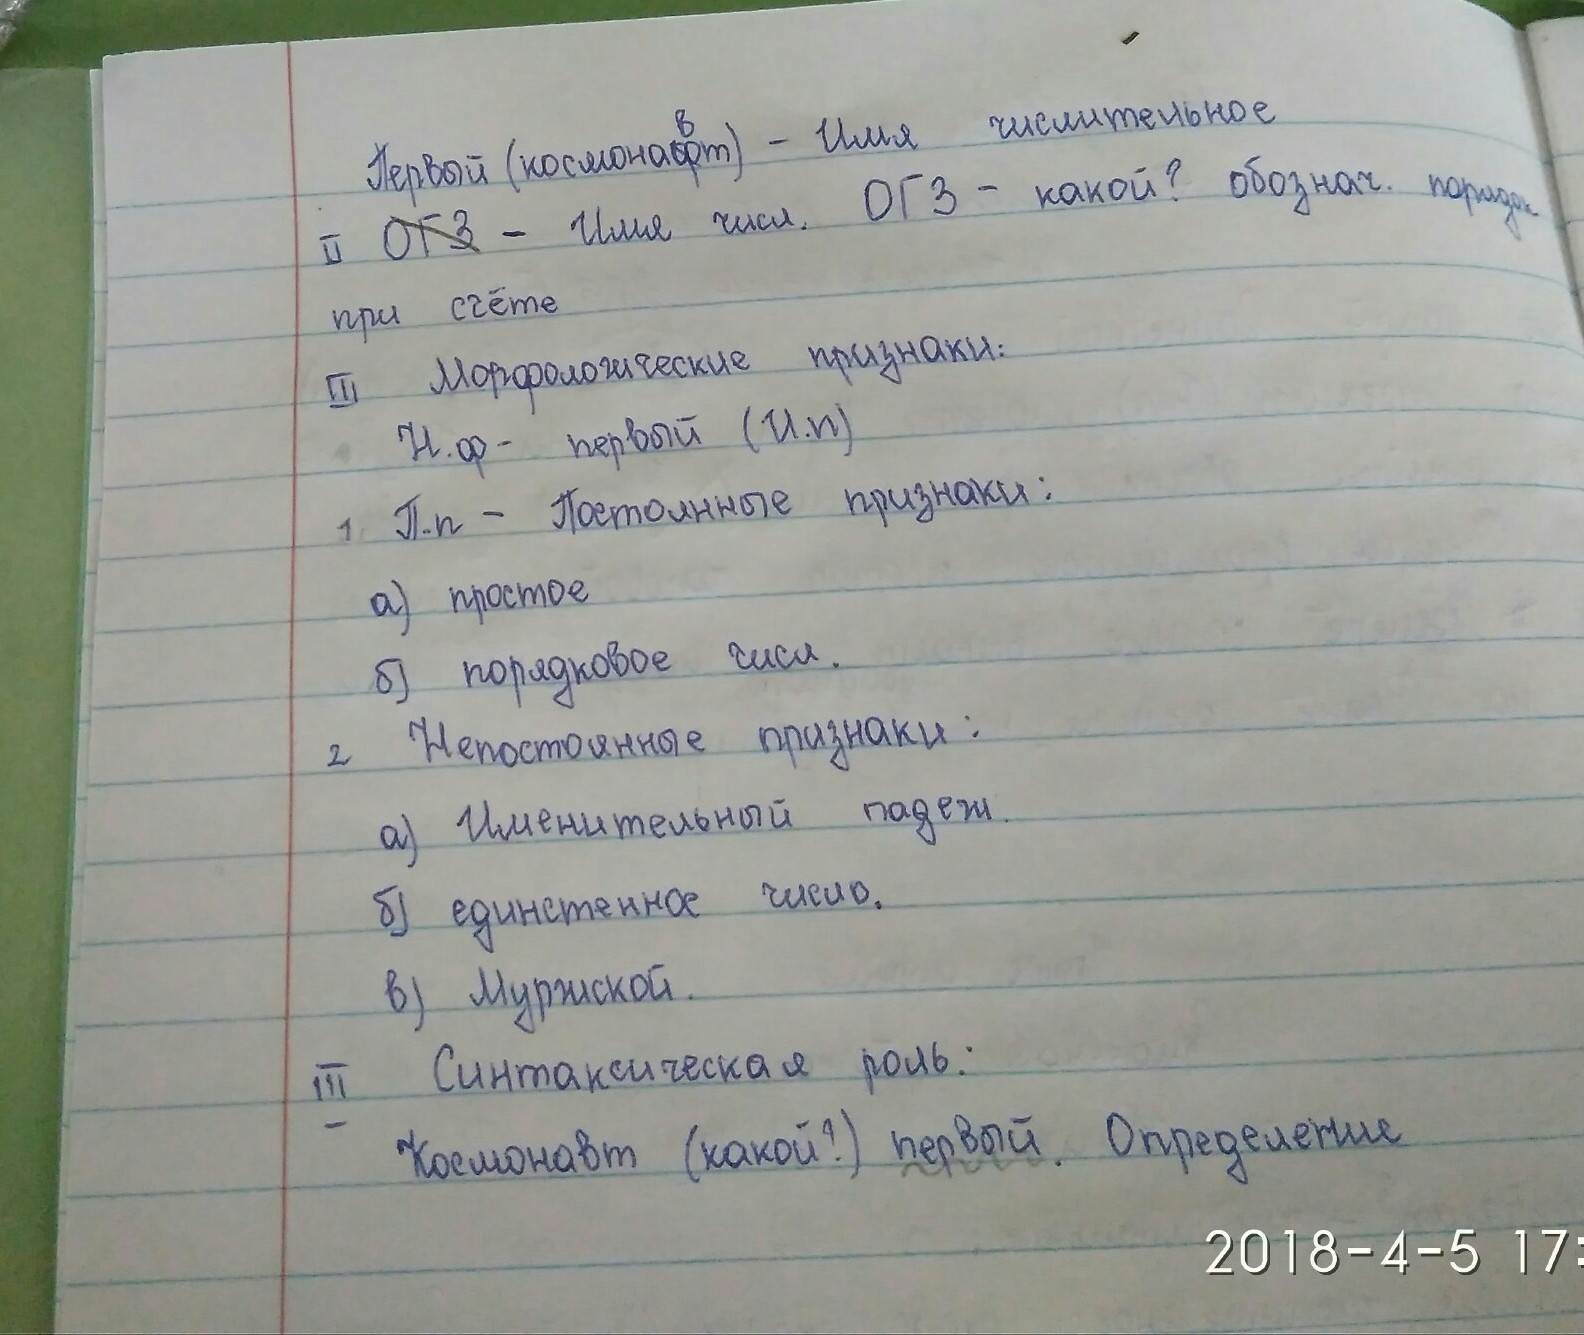 Первый (космонавт) - Имя числительное
II ОГЗ - Имя числ. ОГЗ - какой? обознач. порядок
при счёте
III Морфологические признаки:
Н.ф - первый (И.п)
1. П.п - Постоянные признаки:
а) простое
б) порядковое числ.
2 Непостоянные признаки:
а) Именительный падеж.
б) единстенное число.
в) Муржской.
III Синтаксическая роль:
Космонавт (какой?) первый. Определение
2018-4-5 17: